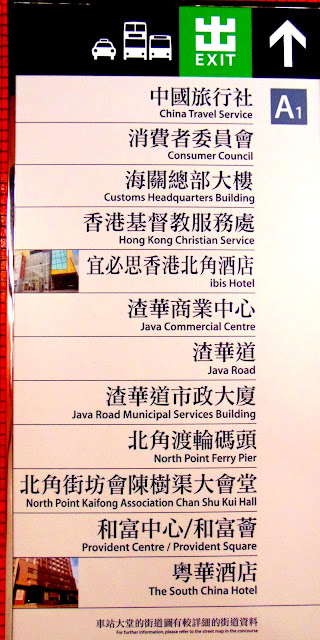 出
EXIT
中國旅行社
China Travel Service
A1
消費者委員會
Consumer Council
海關總部大樓
Customs Headquarters Building
香港基督教服務處
Hong Kong Christian Service
宜必思香港北角酒店
ibis Hotel
渣華商業中心
Java Commercial Centre
渣華道
Java Road
渣華道市政大廈
Java Road Municipal Services Building
北角渡輪碼頭
North Point Ferry Pier
北角街坊會陳樹渠大會堂
North Point Kaifong Association Chan Shu Kui Hall
和富中心/和富薈
Provident Centre / Provident Square
粵華酒店
The South China Hotel
車站大堂的街道圖有較詳細的街道資料
For further information, please refer to the street map in the concourse